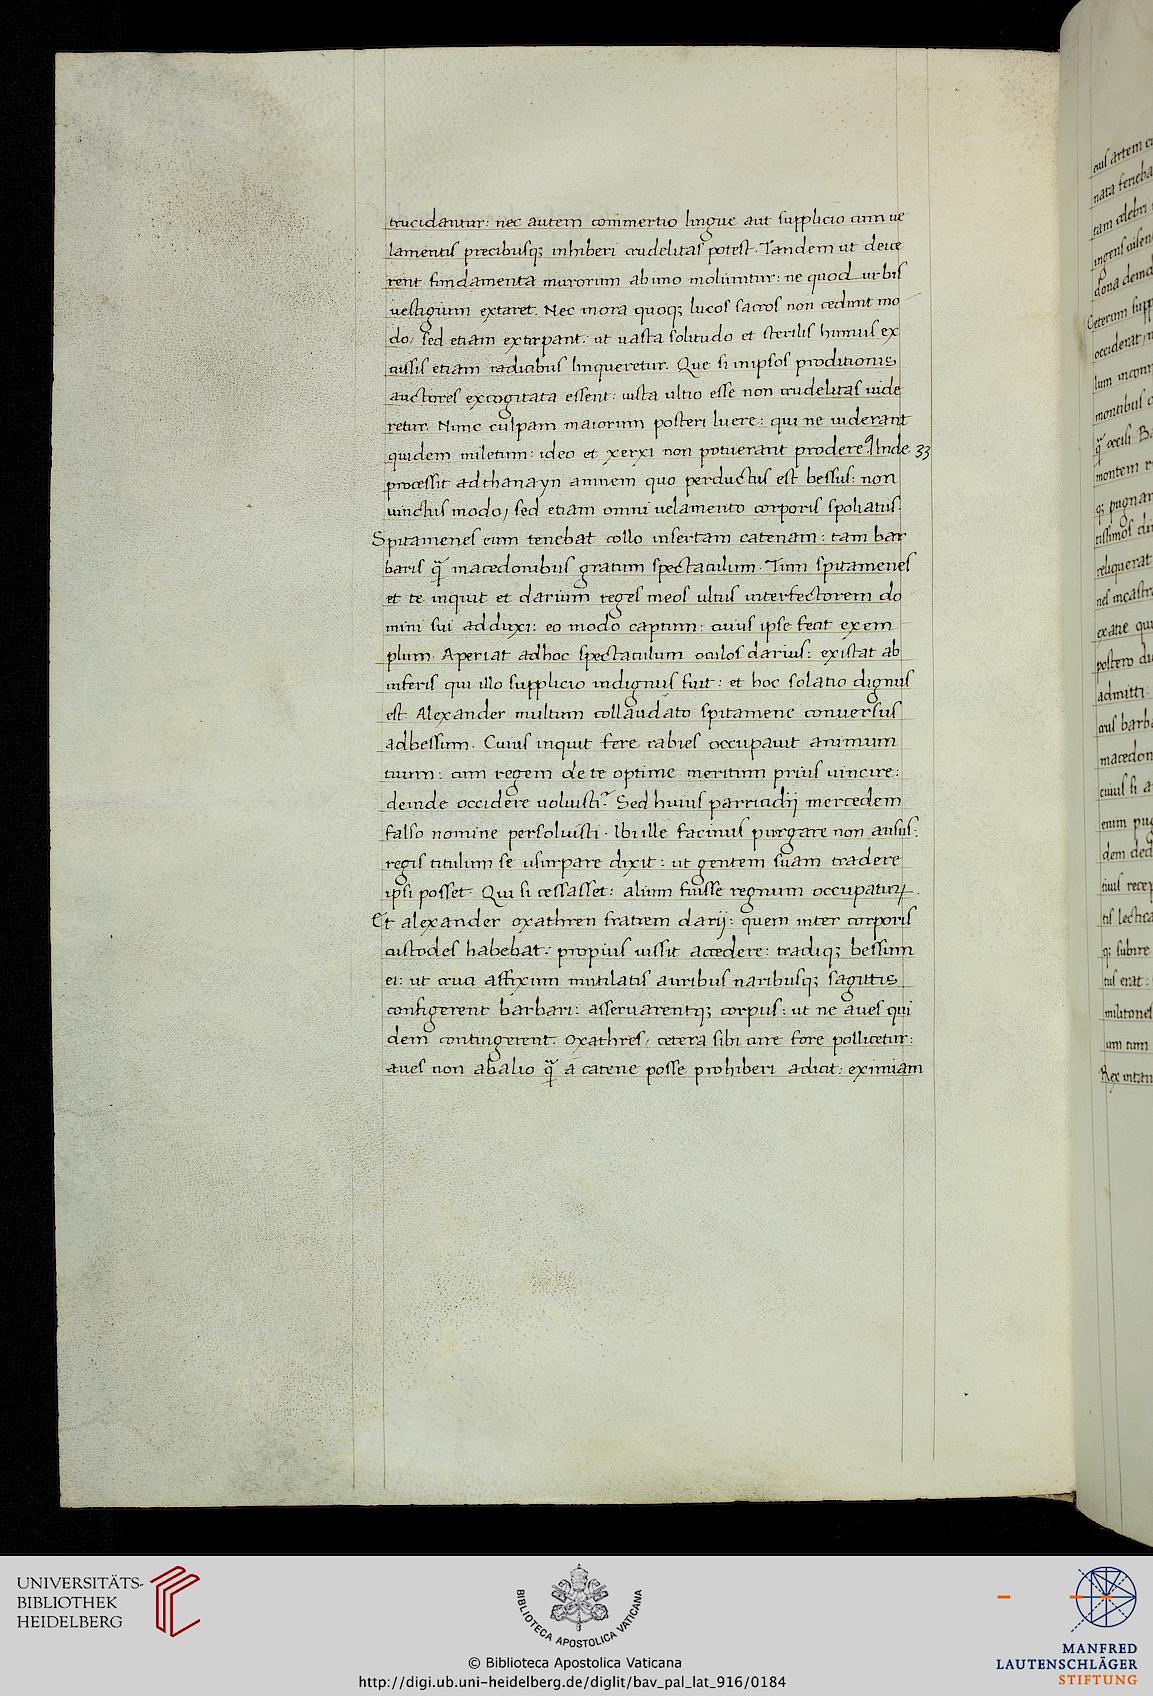 trucidantur: nec autem commertio lingue aut supplicio cum ue
lamentis precibusq; inhiberi crudelitas potest. Tandem ut deice
rent fundamenta murorum ab imo moliuntur: ne quod urbis
uestigium extaret. Nec mora quoq; lucos sacros non cedunt mo
do, sed etiam extirpant: ut uasta solitudo et sterilis humus ex
cissis etiam radicibus linqueretur. Que si in ipsos proditionis
auctores excogitata essent: iusta ultio esse non crudelitas uide
retur. Nunc culpam maiorum posteri luere: qui ne uiderant
quidem miletum: ideo et xerxi non potuerant prodere. Inde 33
processit ad thanayn amnem quo perductus est bessus: non
uinctus modo, sed etiam omni uelamento corporis spoliatus.
Spitamenes eum tenebat collo insertam catenam: tam bar
baris q̃ macedonibus gratum spectaculum. Tum spitamenes
et te inquit et darium reges meos ultus interfectorem do
mini sui adduxi: eo modo captum: cuius ipse fecit exem
plum. Aperiat ad hoc spectaculum oculos darius: existat ab
inferis qui illo supplicio indignus fuit: et hoc solatio dignus
est. Alexander multum collaudato spitamene conuersus
ad bessum. Cuius inquit fere rabies occupauit animum
tuum: cum regem de te optime meritum prius uincire:
deinde occidere uoluisti? Sed huius parricidij mercedem
falso nomine persoluisti. Ibi ille facinus purgare non ausus:
regis titulum se usurpare dixit: ut gentem suam tradere
ipsi posset. Qui si cessasset: alium fuisse regnum occupaturꝝ.
Et alexander oxathren fratrem darij: quem inter corporis
custodes habebat: propius iussit accedere: tradiq; bessum
ei: ut cruci affixum mutilatis auribus naribusq; sagittis
configerent barbari: asseruarentq; corpus: ut ne aues qui
dem contingerent. Oxathres, cetera sibi cure fore pollicetur:
aues non ab alio q̃ a catene posse prohiberi adicit: eximiam
UNIVERSITÄTS-
BIBLIOTHEK
HEIDELBERG
BIBLIOTECA APOSTOLICA VATICANA
© Biblioteca Apostolica Vaticana
http://digi.ub.uni-heidelberg.de/diglit/bav_pal_lat_916/0184
MANFRED
LAUTENSCHLÄGER
STIFTUNG